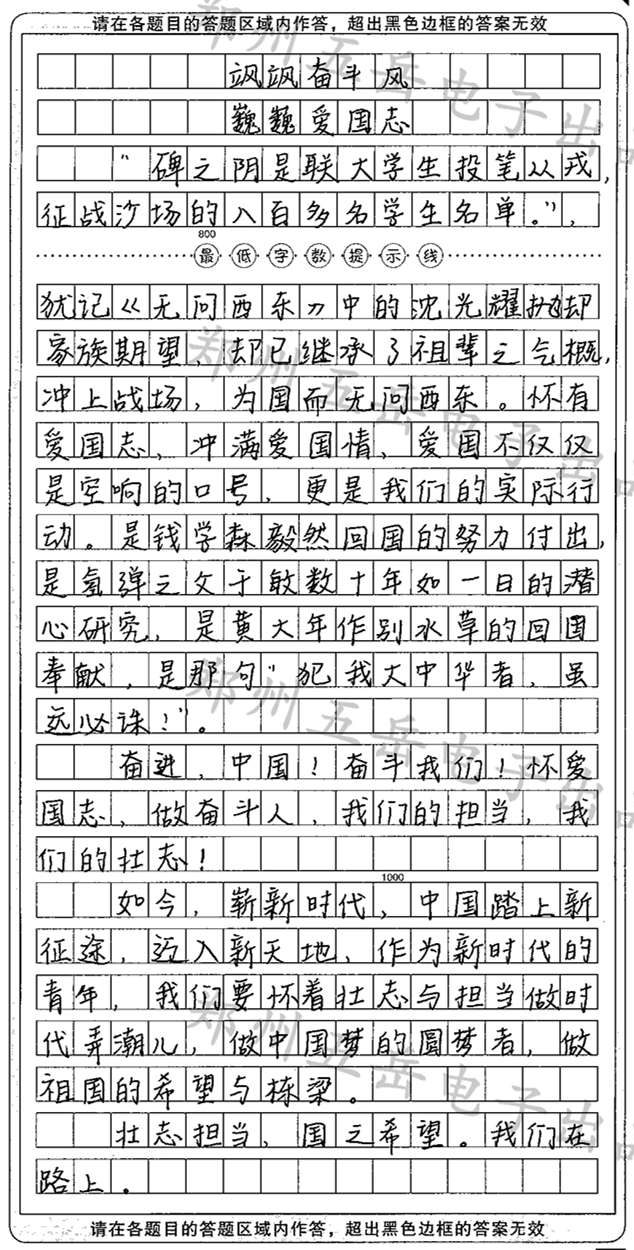 请在各题目的答题区域内作答，超出黑色边框的答案无效
飒飒奋斗风
巍巍爱国志
"碑之阴是联大学生投笔从戎，
征战沙场的八百多名学生名单。"，
800
最低字数提示线
犹记《无问西东》中的沈光耀抛却
家族期望，却已继承了祖辈之气概，
冲上战场，为国而无问西东。怀有
爱国志，冲满爱国情，爱国不仅仅
是空响的口号，更是我们的实际行
动。是钱学森毅然回国的努力付出，
是氢弹之父于敏数十年如一日的潜
心研究，是黄大年作别水草的回国
奉献，是那句"犯我大中华者，虽
远必诛！"。
奋进，中国！奋斗我们！怀爱
国志，做奋斗人，我们的担当，我
们的壮志！
1000
如今，崭新时代，中国踏上新
征途，迈入新天地，作为新时代的
青年，我们要怀着壮志与担当做时
代弄潮儿，做中国梦的圆梦者，做
祖国的希望与栋梁。
壮志担当，国之希望。我们在
路上。
请在各题目的答题区域内作答，超出黑色边框的答案无效
郑州五岳电子出
郑州五岳电子出
郑州五岳电子出
郑州五岳电子出